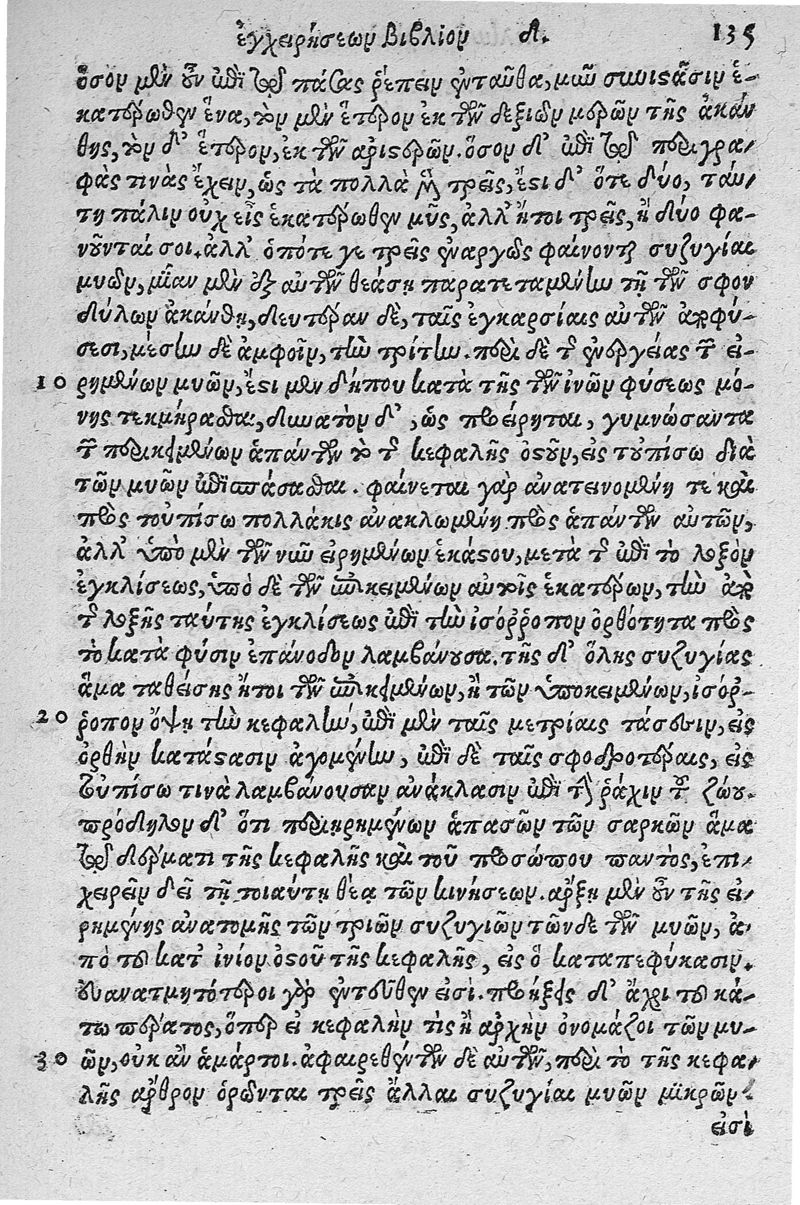 ἐγχειρήσεων Βιβλίον Δ. 135
ὅσον μὲν οὖν ἐπὶ τῷ πάσας ῥέπειν ἐνταῦθα, μῦν συνιστᾶσιν ἑ-
κατέρωθεν ἕνα, τὸν μὲν ἕτερον ἐκ τῶν δεξιῶν μερῶν τῆς ἀκάν
θης, τὸν δ' ἕτερον, ἐκ τῶν ἀριστερῶν. ὅσον δ' ἐπὶ τῷ περιγρα-
φάς τινας ἔχειν, ὡς τὰ πολλὰ μὲν τρεῖς, ἔστι δ' ὅτε δύο, ταύ-
τῃ πάλιν οὐχ εἷς ἑκατέρωθεν μῦς, ἀλλ' ἤτοι τρεῖς, ἢ δύο φα-
νοῦνταί σοι. ἀλλ' ὁπότε γε τρεῖς ἐναργῶς φαίνονται συζυγίαι
μυῶν, μίαν μὲν ἐξ αὐτῶν θεάσῃ παρατεταμένην τῇ τῶν σφον
δύλων ἀκάνθῃ, δευτέραν δὲ, ταῖς ἐγκαρσίαις αὐτῶν ἀποφύ-
σεσι, μέσην δὲ ἀμφοῖν, τὴν τρίτην. περὶ δὲ τῆς ἐνεργείας τῶν εἰ-
10 ρημένων μυῶν, ἔστι μὲν δήπου κατὰ τῆς τῶν ἰνῶν φύσεως μό-
νης τεκμήρασθαι, δυνατὸν δ', ὡς προείρηται, γυμνώσαντα
τῶν περικειμένων ἁπάντων τὸ τῆς κεφαλῆς ὀστοῦν, εἰς τοὐπίσω διὰ
τῶν μυῶν ἐπισπάσασθαι. φαίνεται γὰρ ἀνατεινομένη τε καὶ
πρὸς τοὐπίσω πολλάκις ἀνακλωμένη πρὸς ἁπάντων αὐτῶν,
ἀλλ' ὑπὸ μὲν τῶν νῦν εἰρημένων ἑκάστου, μετὰ τῆς ἐπὶ τὸ λοξὸν
ἐγκλίσεως, ὑπὸ δὲ τῶν ἐπικειμένων αὐτοῖς ἑκατέρων, τὴν ἀπὸ
τῆς λοξῆς ταύτης ἐγκλίσεως ἐπὶ τὴν ἰσόῤῥοπον ὀρθότητα πρὸς
τὸ κατὰ φύσιν ἐπάνοδον λαμβάνουσα. τῆς δ' ὅλης συζυγίας
ἅμα ταθείσης ἤτοι τῶν ἐπικειμένων, ἢ τῶν ὑποκειμένων, ἰσόῤ-
20 ῥοπον ὄψῃ τὴν κεφαλὴν, ἐπὶ μὲν ταῖς μετρίαις τάσεσιν, εἰς
ὀρθὴν κατάστασιν ἀγομένην, ἐπὶ δὲ ταῖς σφοδροτέραις, εἰς
τοὐπίσω τινὰ λαμβάνουσαν ἀνάκλασιν ἐπὶ τὴν ῥάχιν τοῦ ζώου.
πρόδηλον δ' ὅτι περιῃρημένων ἁπασῶν τῶν σαρκῶν ἅμα
τῷ δέρματι τῆς κεφαλῆς καὶ τοῦ προσώπου παντὸς, ἐπι-
χειρεῖν δεῖ τῇ τοιαύτῃ θέᾳ τῶν κινήσεων. ἄρξῃ μὲν οὖν τῆς εἰ-
ρημένης ἀνατομῆς τῶν τριῶν συζυγιῶν τῶνδε τῶν μυῶν, ἀ-
πὸ τοῦ κατ' ἰνίον ὀστοῦ τῆς κεφαλῆς, εἰς ὃ καταπεφύκασιν.
εὐανατμητότεροι γὰρ ἐντεῦθεν εἰσί. προήξεις δ' ἄχρι τοῦ κά-
τω πέρατος, ὅπερ εἰ κεφαλήν τις ἢ ἀρχὴν ὀνομάζοι τῶν μυ-
30 ῶν, οὐκ ἂν ἁμάρτοι. ἀφαιρεθέντων δὲ αὐτῶν, περὶ τὸ τῆς κεφα-
λῆς ἄρθρον ὁρῶνται τρεῖς ἄλλαι συζυγίαι μυῶν μικρῶν
εἰσὶ